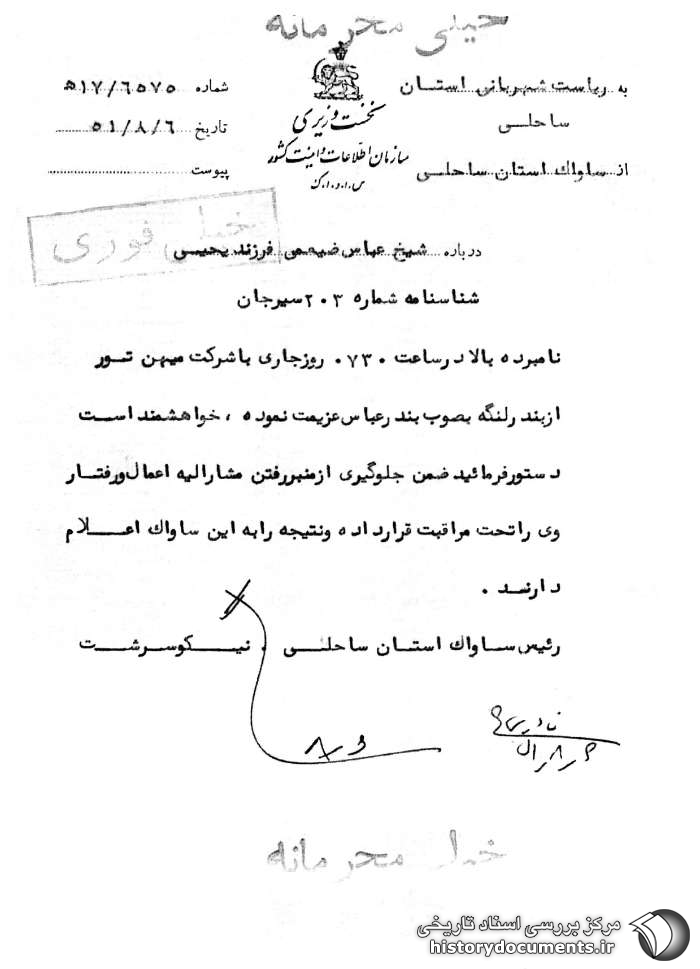 خیلی محرمانه
به ریاست شهربانی استان
ساحلی
از ساواک استان ساحلی
نخست وزیری
سازمان اطلاعات و امنیت کشور
س.ا.و.ا.ک
شماره ۵۱۷/۶۵۷۵ﻫ
تاریخ ۵۱/۸/۶
پیوست
خیلی فوری
درباره شیخ عباس ضیعمی فرزند یحیی
شناسنامه شماره ۲۰۳ سیرجان
نامبرده بالا درساعت ۰۷۳۰ روزجاری باشرکت میهن تور
ازبندرلنگه بصوب بندرعباس عزیمت نموده ، خواهشمند است
دستورفرمائید ضمن جلوگیری ازمنبررفتن مشارالیه اعمال ورفتار
وی راتحت مراقبت قرارداده ونتیجه رابه این ساواک اعلام
دارند .
رئیس ساواک استان ساحلی . نیکوسرشت
خیلی محرمانه
مرکز بررسی اسناد تاریخی
historydocuments.ir